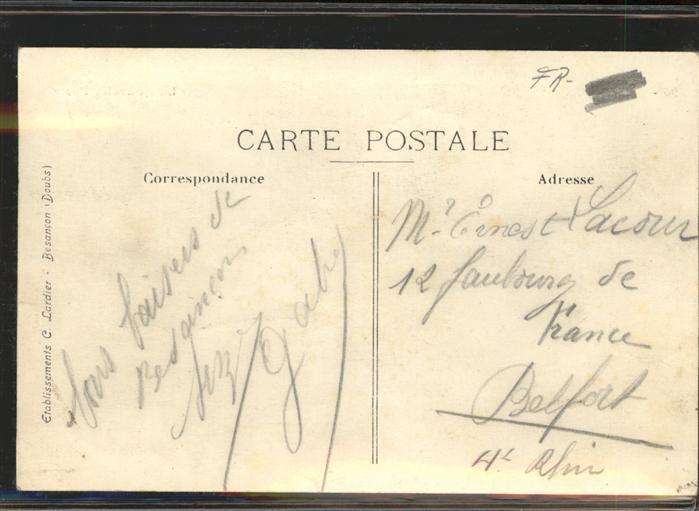 FR-
CARTE POSTALE
Correspondance
Adresse
Etablissements C. Lardier - Besançon (Doubs)
Bons baisers de
Besançon
Gaby
Mr. Ernest Lacour
12 faubourg de
France
Belfort
Ht Rhin